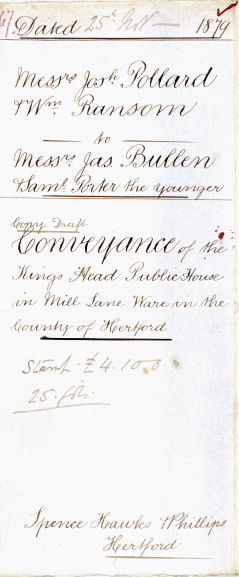 Dated 25th Nov 1879
Messrs Josh Pollard
& Wm Ransom
to
Messrs Jas Bullen
& Saml Porter the younger
Copy Draft
Conveyance of the
Kings Head Public House
in Mill Lane Ware in the
County of Hertford
Stamp. £4.10.0
25. fols.
Spence Hawks & Phillips
Hertford